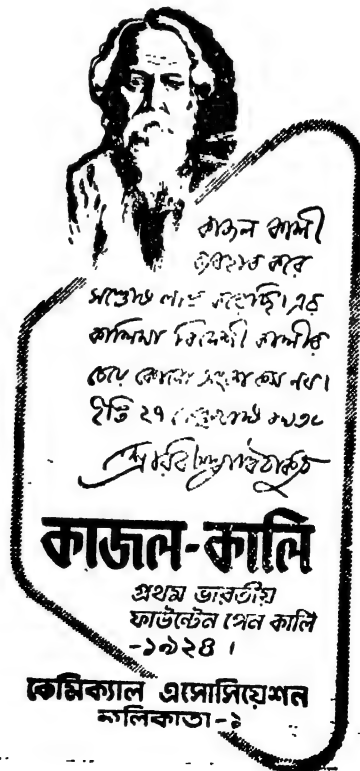 কাজল কালী
ব্যবহার করে
সন্তোষ লাভ করেছি। এর
কালিমা বিদেশী কালীর
চেয়ে কোনো অংশে কম নয়।
ইতি ২৭
শ্রীরবীন্দ্রনাথ ঠাকুর
কাজল-কালি
প্রথম ভারতীয়
ফাউন্টেন পেন কালি
-১৯২৪।
কেমিক্যাল এসোসিয়েশন
কলিকাতা-১